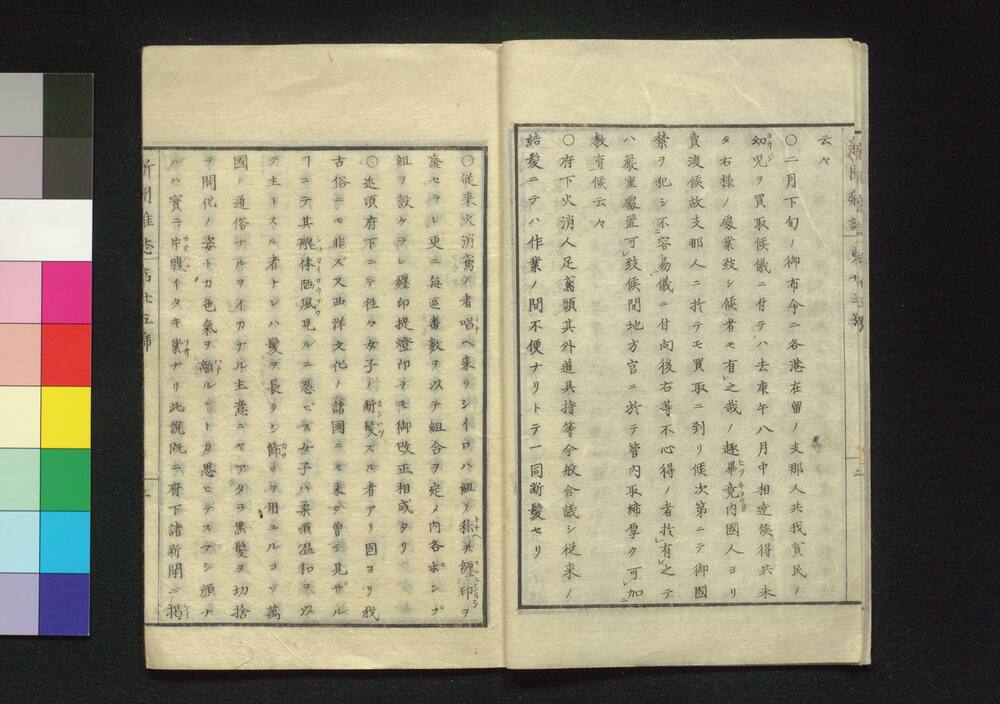 云々
○二月下旬ノ御布令ニ各港在留ノ支那人共我貧民ノ
幼児ヲ買取候儀ニ付テハ去庚午八月中相達候得共未
タ右様ノ處業致シ候者モ有之哉ノ趣畢竟内國人ヨリ
賣渡候故支那人ニ於テモ買取ニ到リ候次第ニテ御國
禁ヲ犯シ不容易儀ニ付向後右等不心得ノ者於有之テ
ハ嚴重處置可致候間地方官ニ於テ管内取締厚ク可加
教育候云々
○府下火消人足鳶頭其外道具持等今般合議シ従来ノ
結髪ニテハ作業ノ間不便ナリトテ一同断髪セリ
○従来火消鳶ノ者唱ヘ来リシイロハ組ノ称并纏印ヲ
廃セラレ更ニ毎區番數ヲ以テ組合ヲ定メ内各ポンプ
組ヲ設ケラレ纏印提燈印ヲモ御改正相成タリ
○近頃府下ニテ往々女子ノ断髪スル者アリ固ヨリ我
古俗ニモ非ズ又西洋文化ノ諸國ニモ未タ曽テ見ザル
ヿニテ其醜体陋風見ルニ忍ビズ女子ハ柔順温和ヲ以
テ主トスル者ナレハ髪ヲ長クシ飾リヲ用ユルコソ萬
國ノ通俗ナルヲイカナル主意ニヤアタラ黒髪ヲ切捨
テ開化ノ姿トカ色氣ヲ離ルヽトカ思ヒテスマシ顔ナ
ルハ實ニ片腹イタキ業ナリ此説既ニ府下諸新聞ニ掲
新聞雑誌